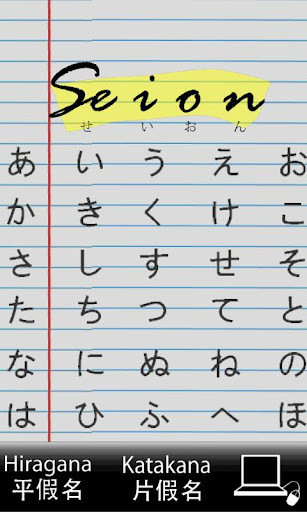 Seion
せいおん
あ い う え お
か き く け こ
さ し す せ そ
た ち つ て と
な に ぬ ね の
は ひ ふ へ ほ
Hiragana Katakana
平假名 片假名